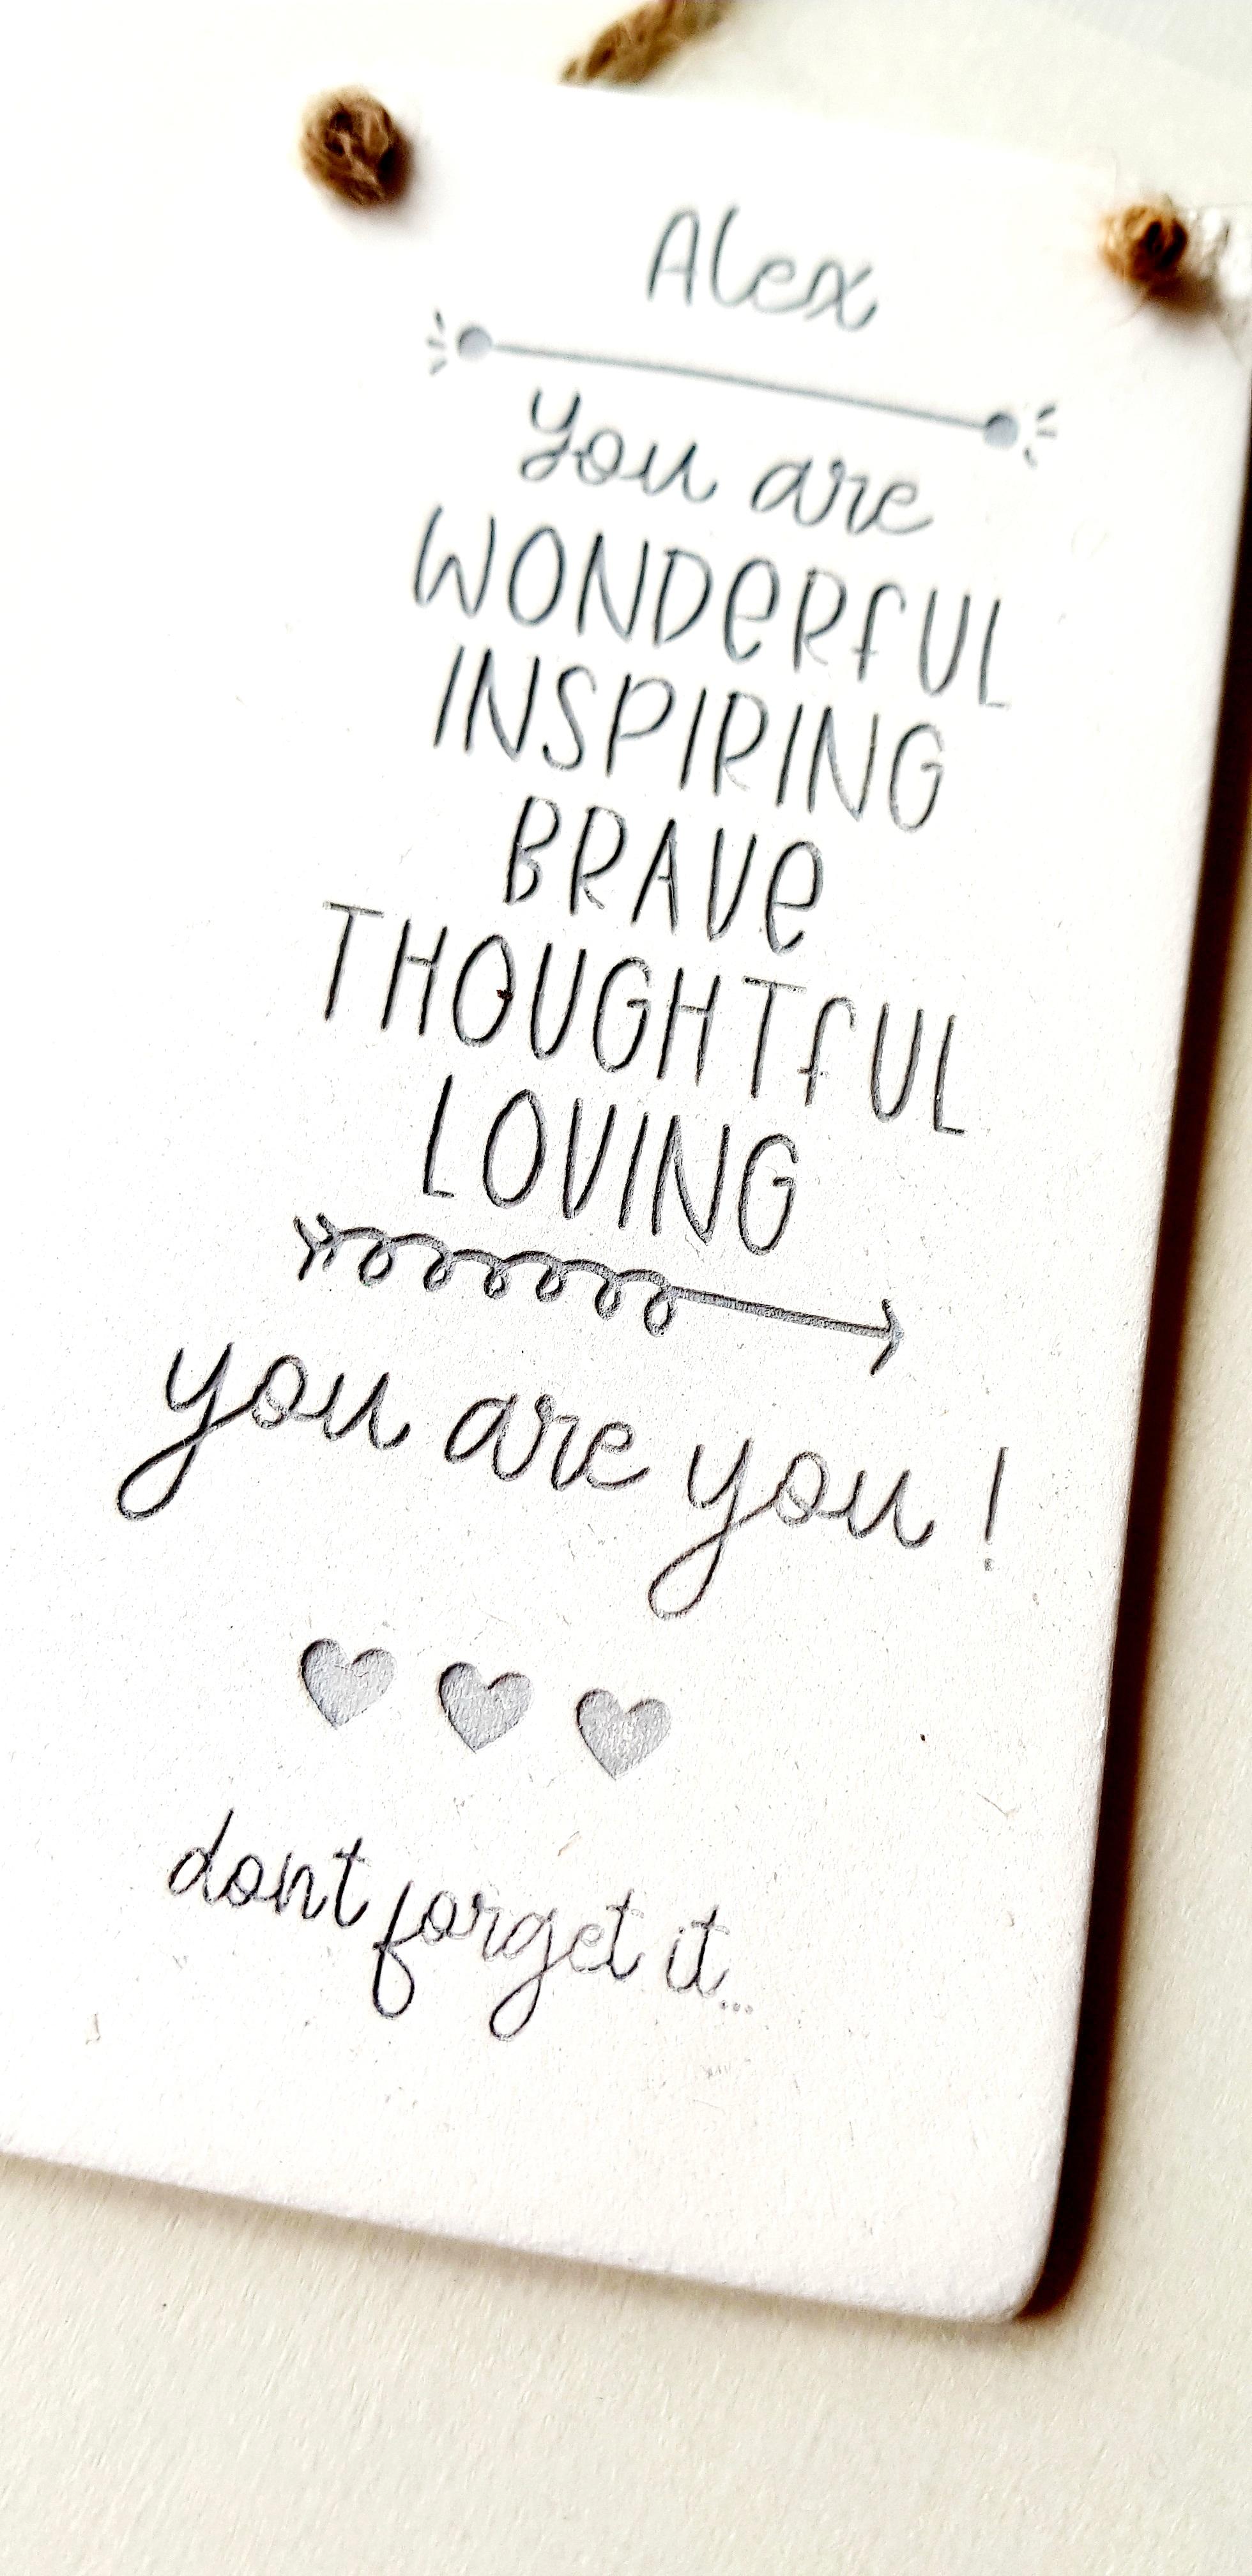 Alex
you are
WONDeRfUL
INSPIRING
BRAVe
THOUGHTfUL
LOVING
you are you!
dont forget it...